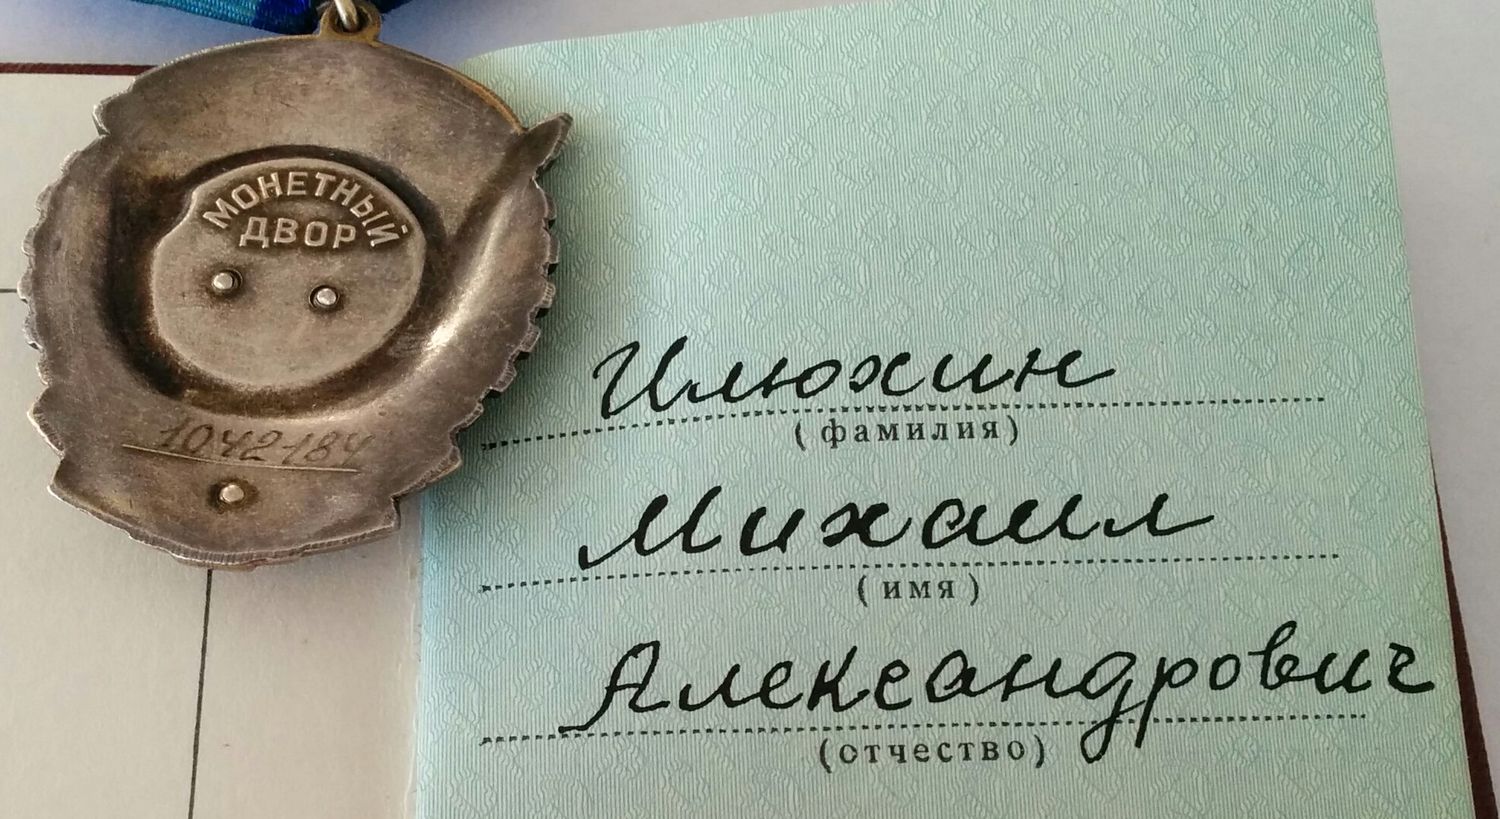 МОНЕТНЫЙ
ДВОР
1042184
Илюхин
(фамилия)
Михаил
(имя)
Александрович
(отчество)